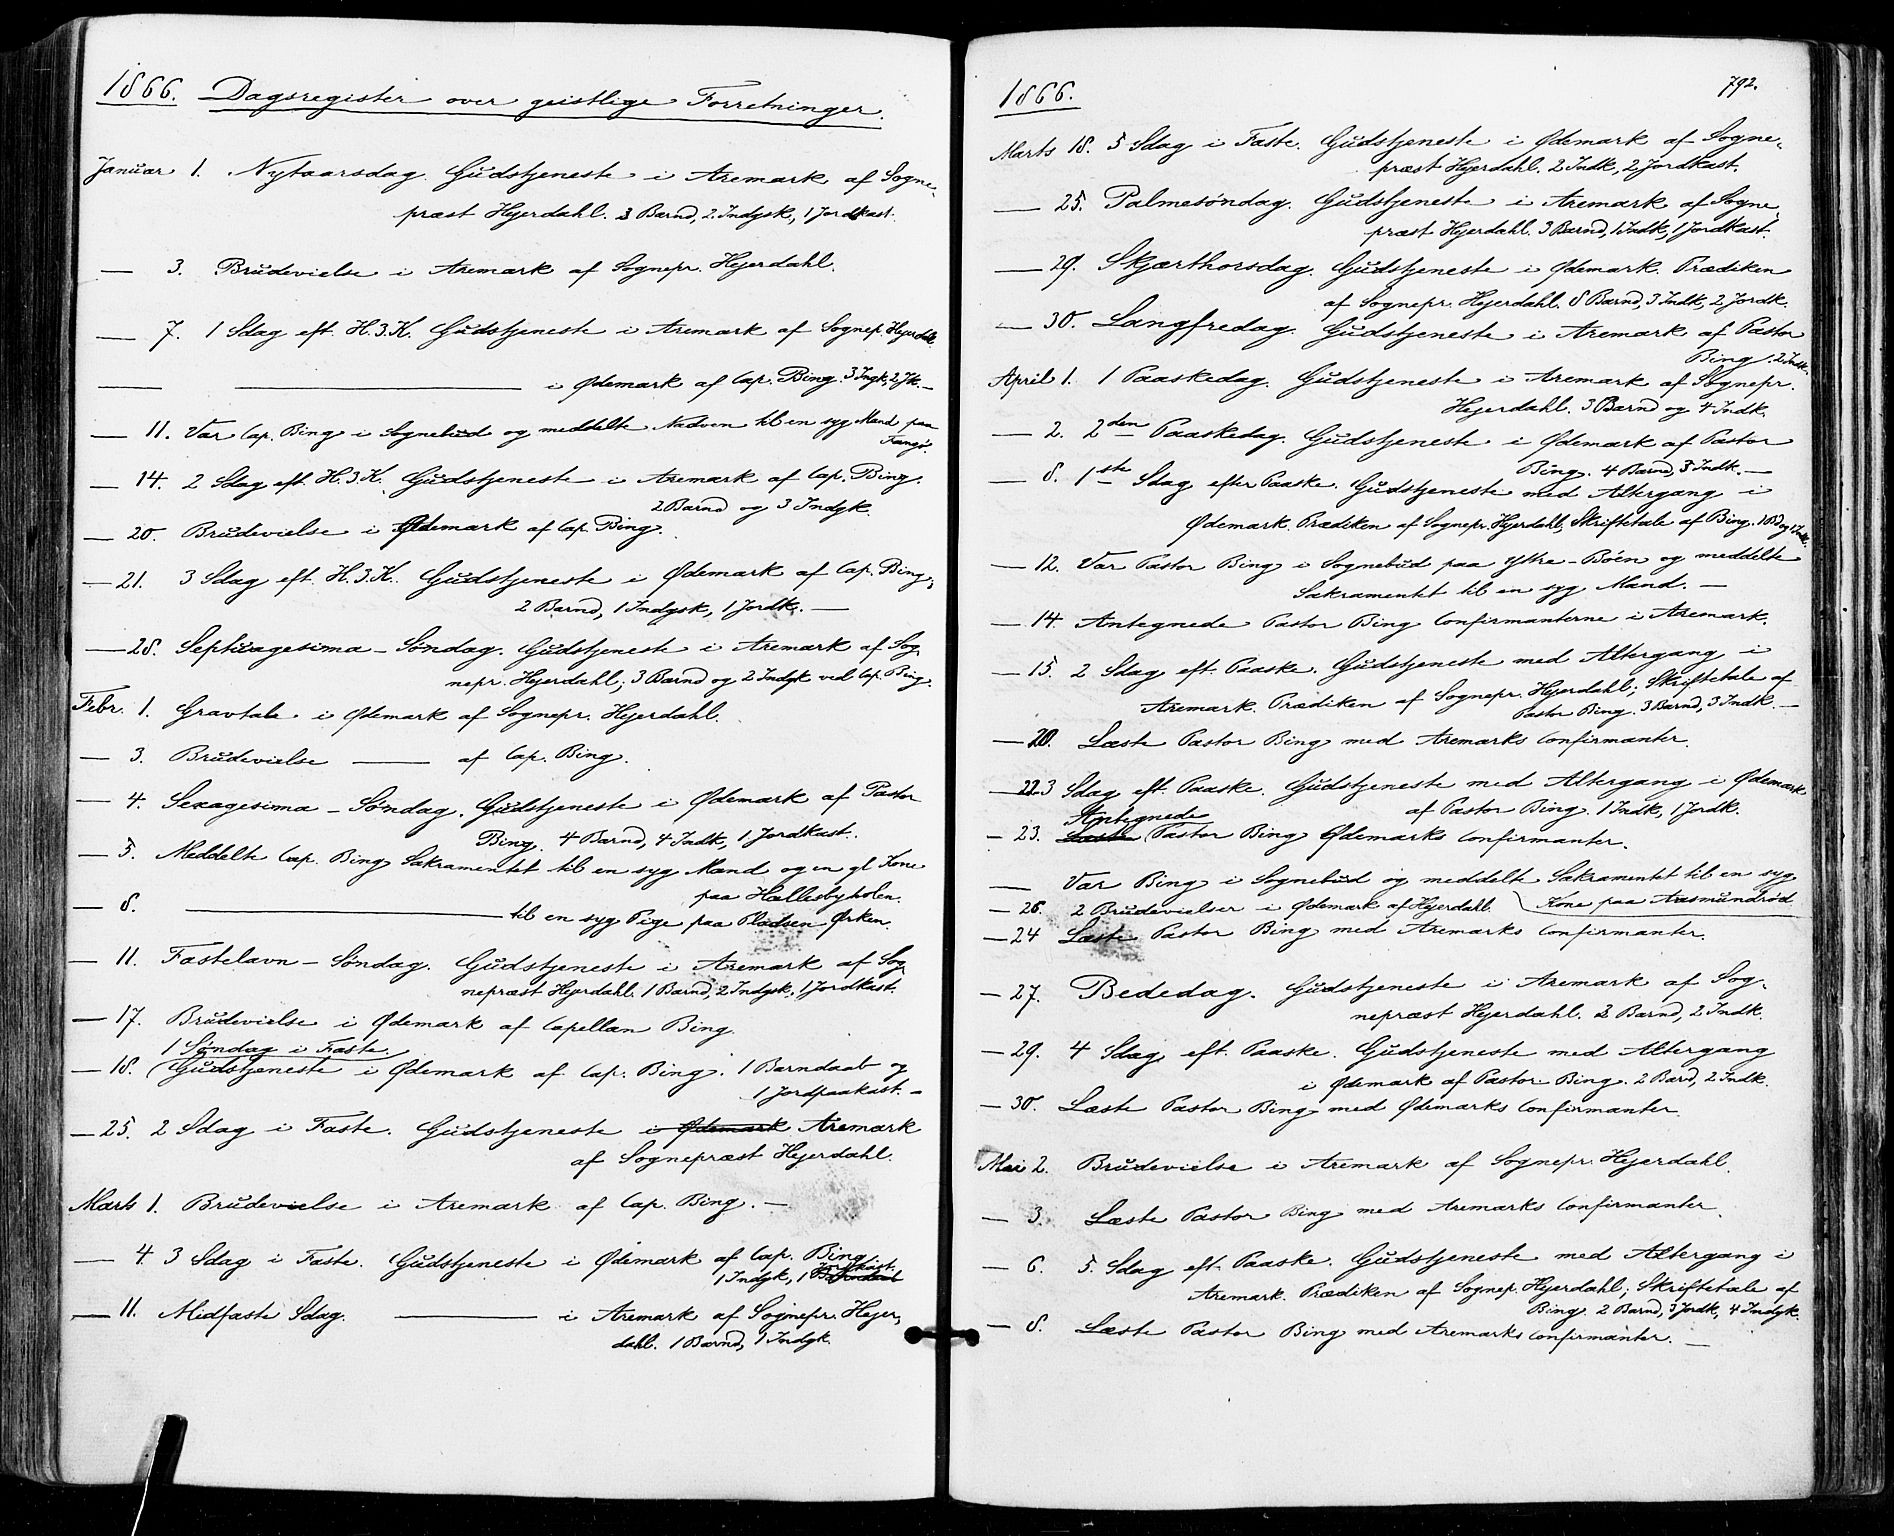 1866. Dagsregister over geistlige Forretninger.
Januar 1. Nytaarsdag. Gudstjeneste i Aremark af Sogne-
præst Hjerdahl. 3 Barnd, 2 Indgsk, 1 Jordkast.
— 3. Brudevielse i Aremark af Sognepr. Hjerdahl.
— 7. 1 Sdag eft. H.3.K. Gudstjeneste i Aremark af Sognep. Hjerdahl.
— — i Ødemark af Cap. Bing. 3 Ingk, 2 Jk. —
— 11. Var Cap. Bing i Sognebud og meddelte Nadven til en syg Mand paa
— 14. 2 Sdag eft. H.3.K. Gudstjeneste i Aremark af Cap. Bing.
2 Barnd og 3 Indgk.
— 20. Brudevielse i Ødemark af Cap. Bing.
— 21. 3 Sdag eft. H.3.K. Gudstjeneste i Ødemark af Cap. Bing,
2 Barnd, 1 Indgsk, 1 Jordk. —
— 28. Septuagesima – Søndag. Gudstjeneste i Aremark af Sog-
nepr. Hjerdahl; 3 Barnd og 2 Indgk ved Cap. Bing.
Febr. 1. Gravtale i Ødemark af Sognepr. Hjerdahl.
— 3. Brudevielse — af Cap. Bing.
— 4. Sexagesima – Søndag. Gudstjeneste i Ødemark af Pastor
Bing. 4 Barnd, 4 Indk, 1 Jordkast.
— 5. Meddelte Cap. Bing Sakramentet til en syg Mand og en gl Kone
paa Hallesbyholen.
— 8. — til en syg Pige paa Pladsen Ørken.
— 11. Fastelavn – Søndag. Gudstjeneste i Aremark af Sog-
nepræst Hjerdahl. 1 Barnd, 2 Indgsk, 1 Jordkast.
— 17. Brudevielse i Ødemark af Capellan Bing.
1 Søndag i Faste.
— 18. Gudstjeneste i Ødemark af Cap. Bing. 1 Barndaab og
1 Jordpaakast. –
— 25. 2 Sdag i Faste. Gudstjeneste i Ødemark Aremark
af Sognepræst Hjerdahl.
Marts 1. Brudevielse i Aremark af Cap. Bing. —
— 4. 3 Sdag i Faste. Gudstjeneste i Ødemark af Cap. Bing
Jordkast.
1 Indgk, 1 Barndaab
— 11. Midfaste Sdag. — i Aremark af Sognepr. Hjer-
dahl. 1 Barnd, 1 Indgk.
1866.
792.
Marts 18. 5 Sdag i Faste. Gudstjeneste i Ødemark af Sogne-
præst Hjerdahl. 2 Indk, 2 Jordkast.
— 25. Palmesøndag. Gudstjeneste i Aremark af Sogne-
præst Hjerdahl. 3 Barnd, 1 Indk, 1 Jordkast.
— 29. Skjærthorsdag. Gudstjeneste i Ødemark. Prædiken
af Sognepr. Hjerdahl. 8 Barnd, 3 Indk, 2 Jordk.
— 30. Langfredag. Gudstjeneste i Aremark af Pastor
Bing. 2 Indk.
April 1. 1 Paaskedag. Gudstjeneste i Aremark af Sognepr.
Hjerdahl. 3 Barnd og 4 Indk.
— 2. 2den Paaskedag. Gudstjeneste i Ødemark af Pastor
Bing. 4 Barnd, 3 Indk. —
— 8. 1ste Sdag efter Paaske. Gudstjeneste med Altergang i
Ødemark. Prædiken af Sognepr. Hjerdahl, Skriftetale af Bing. 1 Bd og 1 Indk.
— 12. Var Pastor Bing i Sognebud paa Ytre-Bøen og meddelte
Sakramentet til en syg Mand. —
— 14. Antegnede Pastor Bing Confirmanterne i Aremark.
— 15. 2 Sdag eft. Paaske. Gudstjeneste med Altergang i
Aremark. Prædiken af Sognepr. Hjerdahl; Skriftetale af
Pastor Bing. 3 Barnd, 3 Indk. —
— 20. Læste Pastor Bing med Aremarks Confirmanter.
— 22. 3 Sdag eft. Paaske. Gudstjeneste med Altergang i Ødemark
af Pastor Bing. 1 Indk, 1 Jordk.
Antegnede
— 23. Læste Pastor Bing Ødemarks Confirmanter.
— Var Bing i Sognebud og meddelte Sakramentet til en syg
Kone paa Aasmundrød
— 26. 2 Brudevielser i Ødemark af Hjerdahl.
— 24 Læste Pastor Bing med Aremarks Confirmanter.
— 27. Bededag. Gudstjeneste i Aremark af Sog-
nepræst Hjerdahl. 2 Barnd, 2 Indk.
— 29. 4 Sdag eft. Paaske. Gudstjeneste med Altergang
i Ødemark af Pastor Bing. 2 Barnd, 2 Indk.
— 30. Læste Pastor Bing med Ødemarks Confirmanter.
Mai 2. Brudevielse i Aremark af Sognepr. Hjerdahl.
— 3. Læste Pastor Bing med Aremarks Confirmanter.
— 6. 5. Sdag eft. Paaske. Gudstjeneste med Altergang i
Aremark. Prædiken af Sognep. Hjerdahl; Skriftetale af
Bing. 2 Barnd, 3 Jordk, 4 Indgk.
— 8. Læste Pastor Bing med Aremarks Confirmanter. —